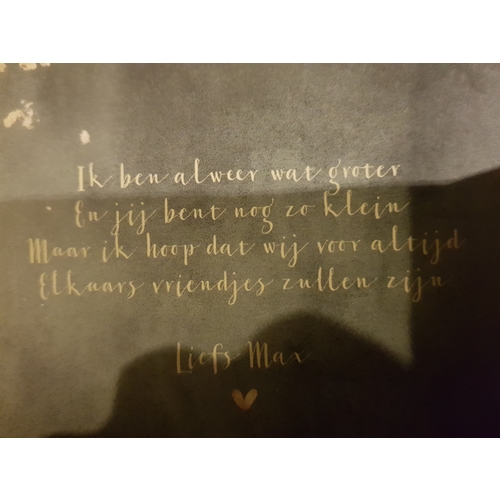 Ik ben alweer wat groter
En jij bent nog zo klein
Maar ik hoop dat wij voor altijd
Elkaars vriendjes zullen zijn
Liefs Max